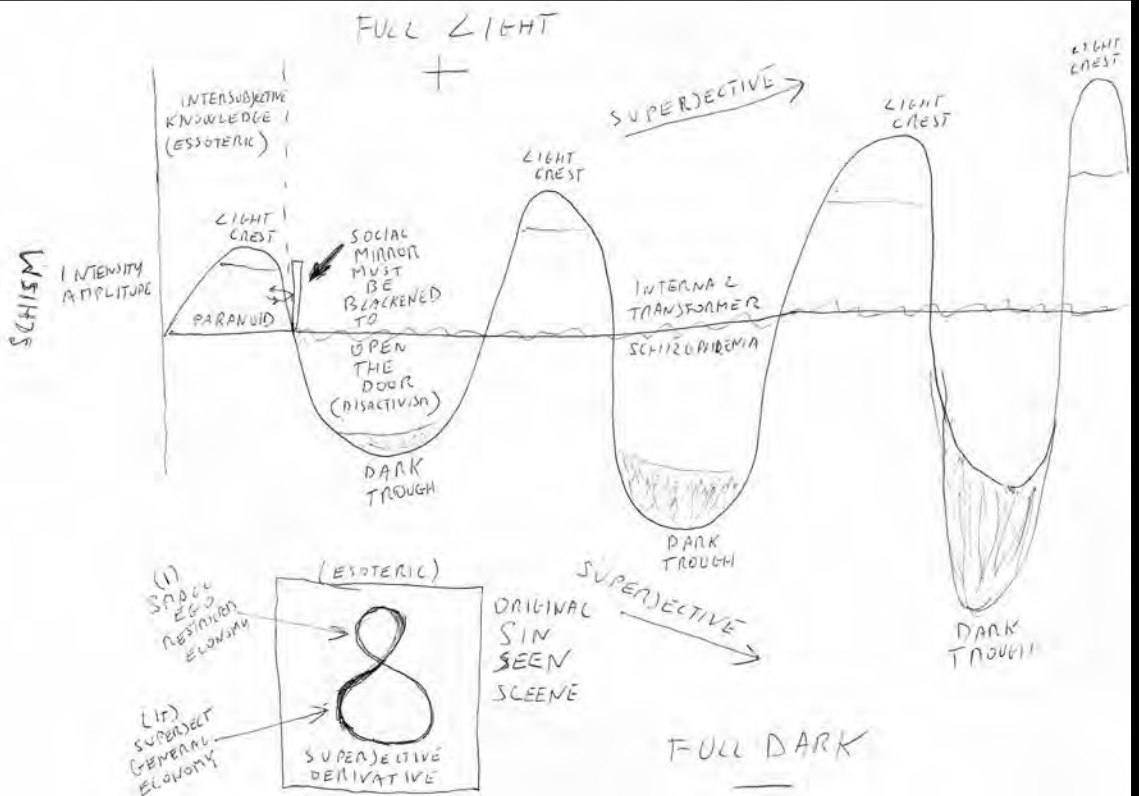 FULL LIGHT
+
SCHISM
INTENSITY
AMPLITUDE
INTERSUBJECTIVE
KNOWLEDGE
(ESSOTERIC)
LIGHT
CREST
PARANOID
SOCIAL
MIRROR
MUST
BE
BLACKENED
TO
OPEN
THE
DOOR
(DISACTIVISM)
DARK
TROUGH
LIGHT
CREST
SUPERJECTIVE
INTERNAL
TRANSFORMER
SCHIZOPHRENIA
DARK
TROUGH
LIGHT
CREST
DARK
TROUGH
LIGHT
CREST
SUPERJECTIVE
(ESOTERIC)
(I)
SMALL
EGO
RESTRICTED
ECONOMY
(II)
SUPERJECT
GENERAL
ECONOMY
SUPERJECTIVE
DERIVATIVE
ORIGINAL
SIN
SEEN
SCEENE
FULL DARK
—